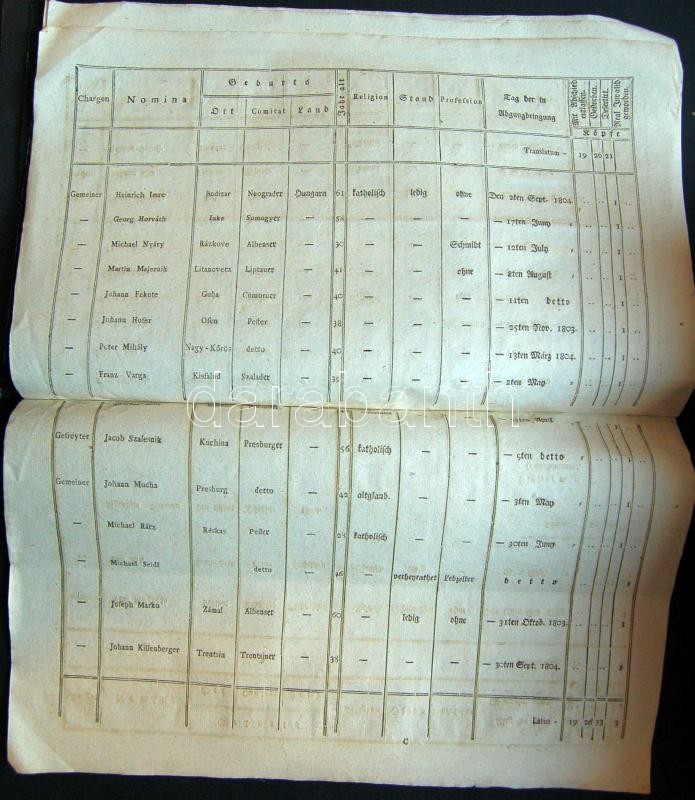 Chargen Nomina Geburts Jahr alt Religion Stand Profession Tag der in Abgangbringung Mit Abschied entlassen. Gestorben. Desertirt. Real Invalid geworden.
Ort Comitat Land Köpfe
Translatum - 19 26 21
Gemeiner Heinrich Imre Bodizar Neograder Hungarn 61 katholisch ledig ohne Den 2ten Sept. 1804. .. .. 1 ..
— Georg Horváth Inke Somogyer — 58 — — — — 17ten Juny " .. .. 1 ..
— Michael Nyáry Rázkove Albenser — 30 — — Schmidt — 12ten July " .. .. 1 ..
— Martin Majernik Litanovetz Liptauer — 41 — — ohne — 8ten August " .. .. 1
— Johann Fekete Guha Comorner — 40 — — — — 11ten detto .. .. .. 1
— Johann Hofer Ofen Pester — 38 — — — — 25sten Nov. 1803. .. .. .. 1
— Peter Mihály Nagy-Kőrös detto — 40 — — — — 13ten März 1804. .. .. .. 1
— Franz Varga Kisfalud Szalader — 35 — — — — 2ten May " .. .. 1
April
Gefreyter Jacob Szalesnik Kuchina Presburger — 56 katholisch — — — 9ten detto " .. .. 1 ..
Gemeiner Johann Mucha Presburg detto — 42 altglaub. — — — 3ten May " .. .. 1 ..
— Michael Rátz Réskas Pester — 23 katholisch — — — 30ten Juny " .. .. 1 ..
— Michael Seidl detto — 46 — verheyrathet Lebzelter detto " .. .. .. 1
— Joseph Marko Zámal Albenser — 60 — ledig ohne — 31ten Oktob. 1803. .. .. .. 1
— Johann Killenberger Trentsin Trentsiner — 38 — — — — 30ten Sept. 1804. .. .. .. 1
Latus - 19 26 33 3
C
darabanth